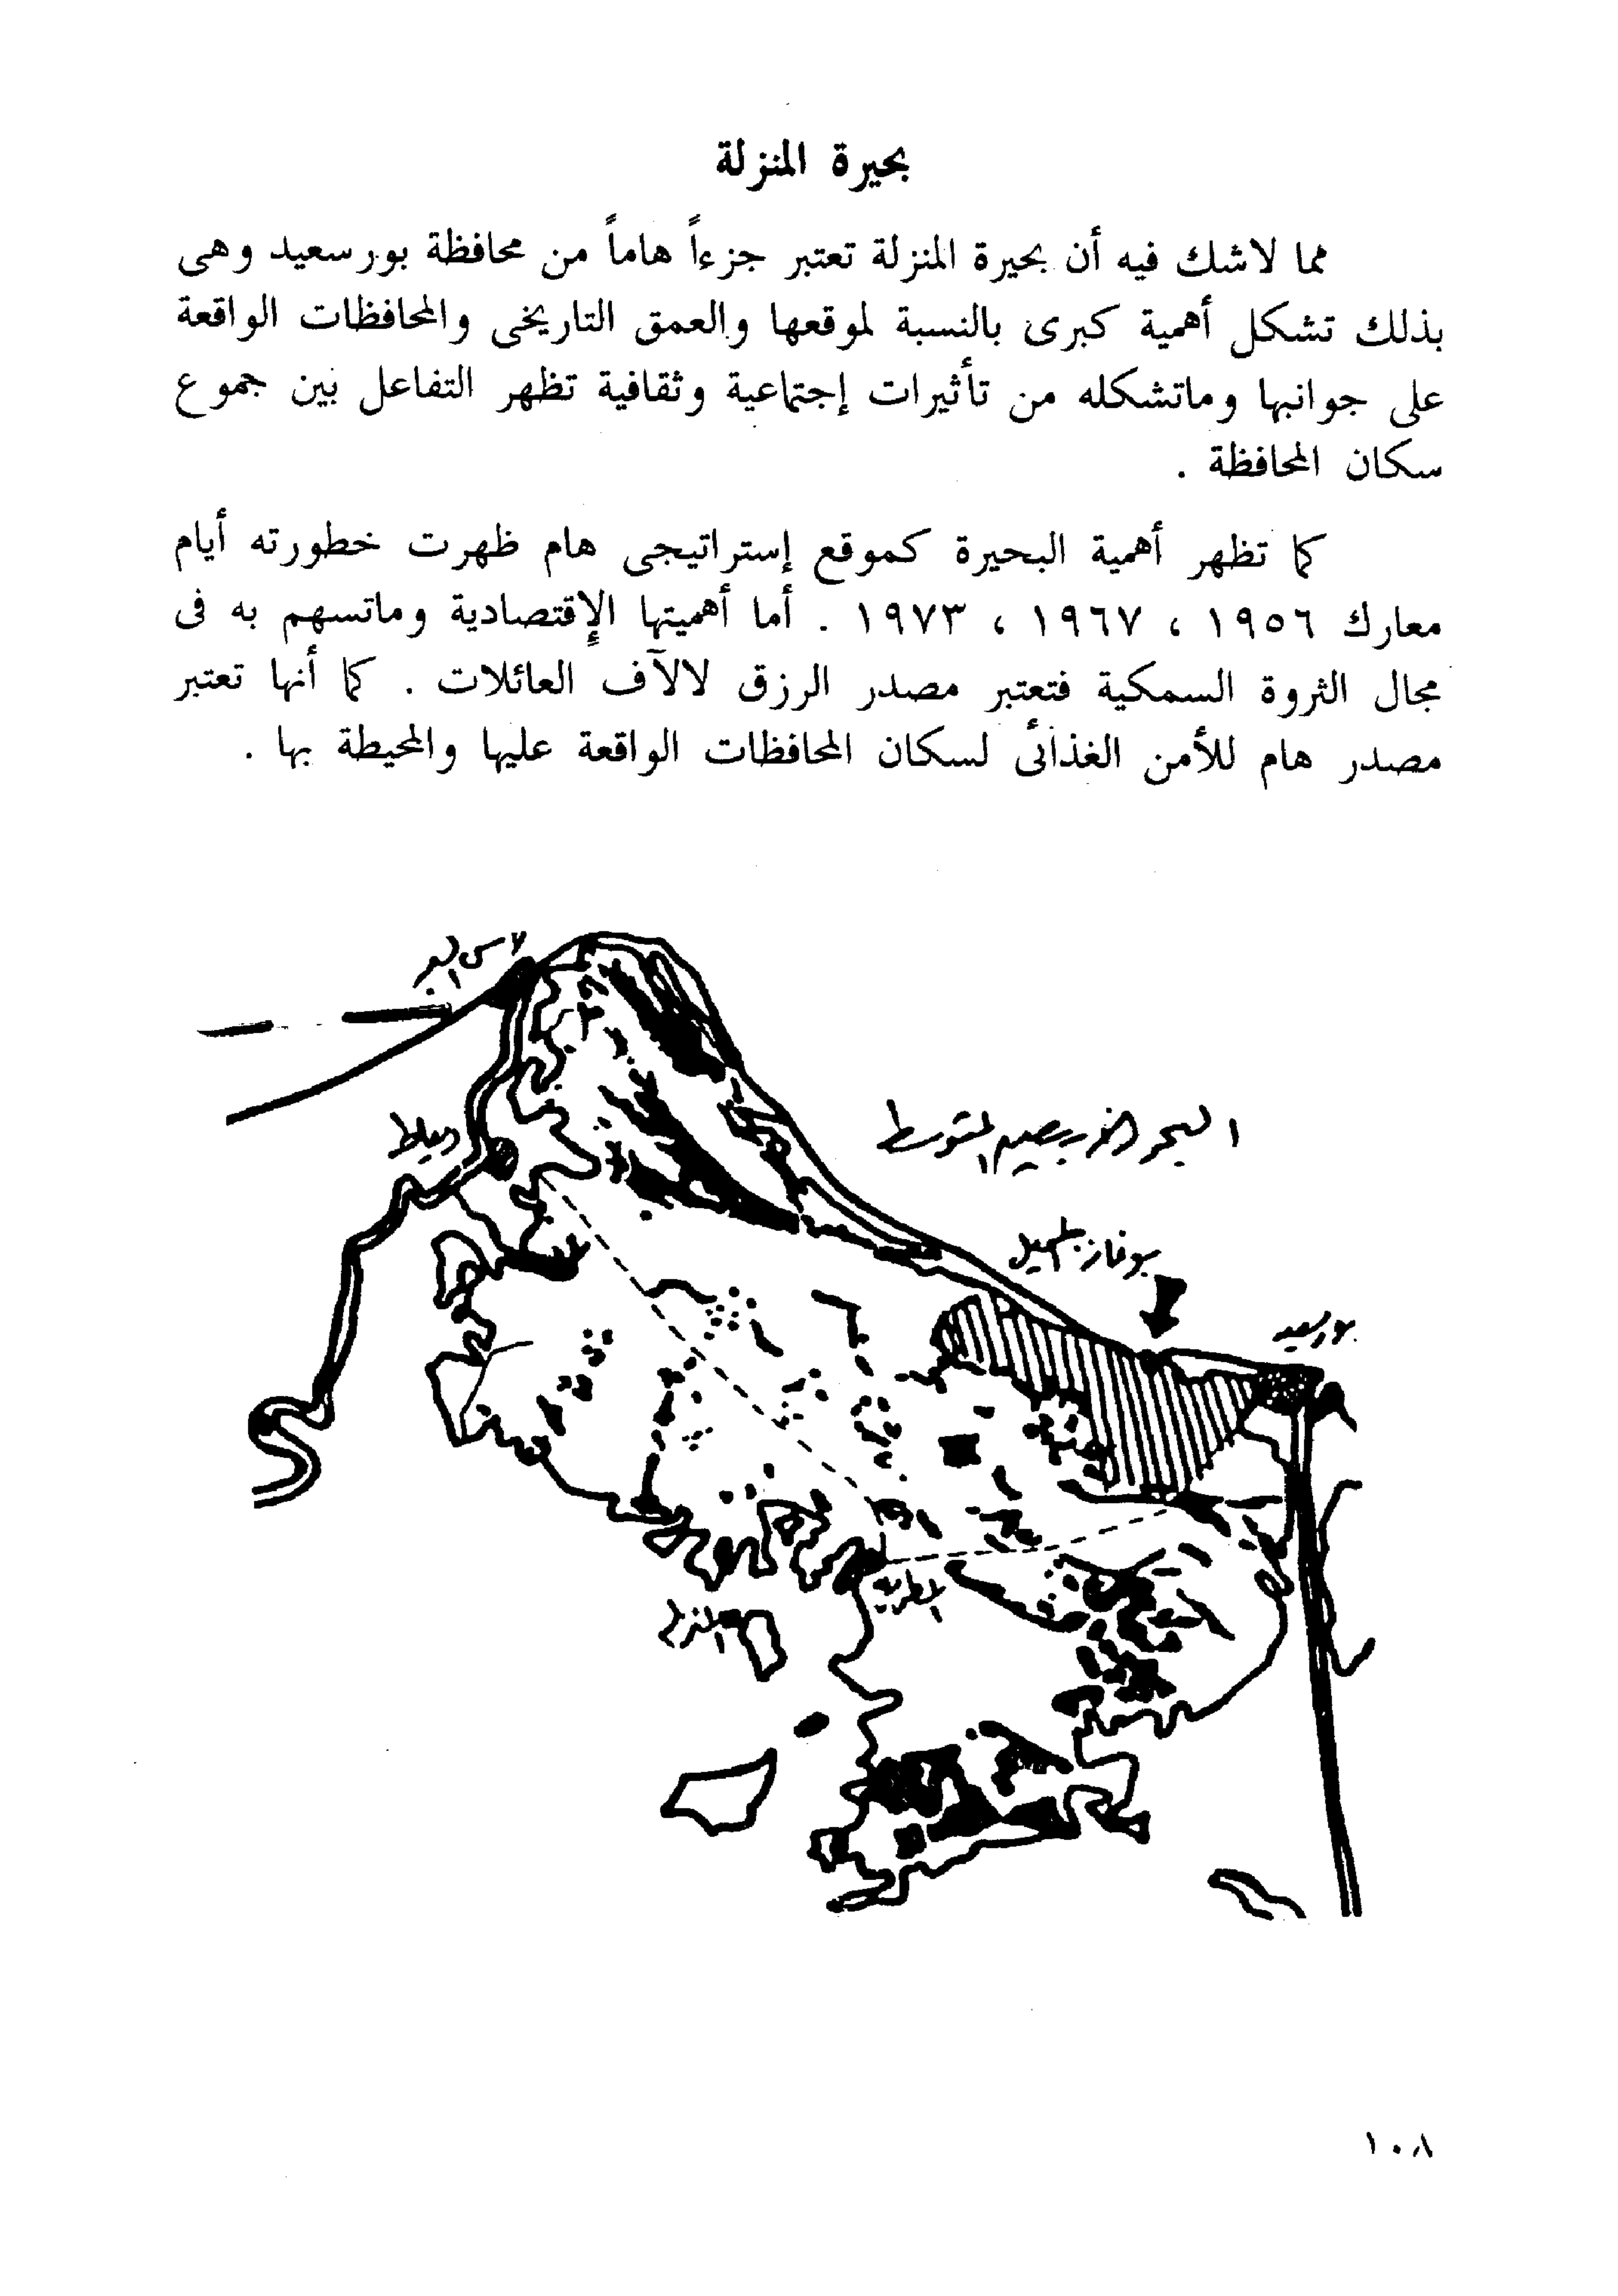 بحيرة المنزلة
مما لاشك فيه أن بحيرة المنزلة تعتبر جزءاً هاماً من محافظة بورسعيد وهى
بذلك تشكل أهمية كبرى بالنسبة لموقعها والعمق التاريخى والمحافظات الواقعة
على جوانبها وماتشكله من تأثيرات إجتماعية وثقافية تظهر التفاعل بين جموع
سكان المحافظة .
كما تظهر أهمية البحيرة كموقع إستراتيجى هام ظهرت خطورته أيام
معارك ١٩٥٦ ، ١٩٦٧ ، ١٩٧٣ . أما أهميتها الإقتصادية وماتسهم به فى
مجال الثروة السمكية فتعتبر مصدر الرزق لالآف العائلات . كما أنها تعتبر
مصدر هام للأمن الغذائى لسكان المحافظات الواقعة عليها والمحيطة بها .
راس البر
دمياط
البحر الأبيض المتوسط
بوغاز الجميل
بورسعيد
المطرية
المنزلة
١٠٨